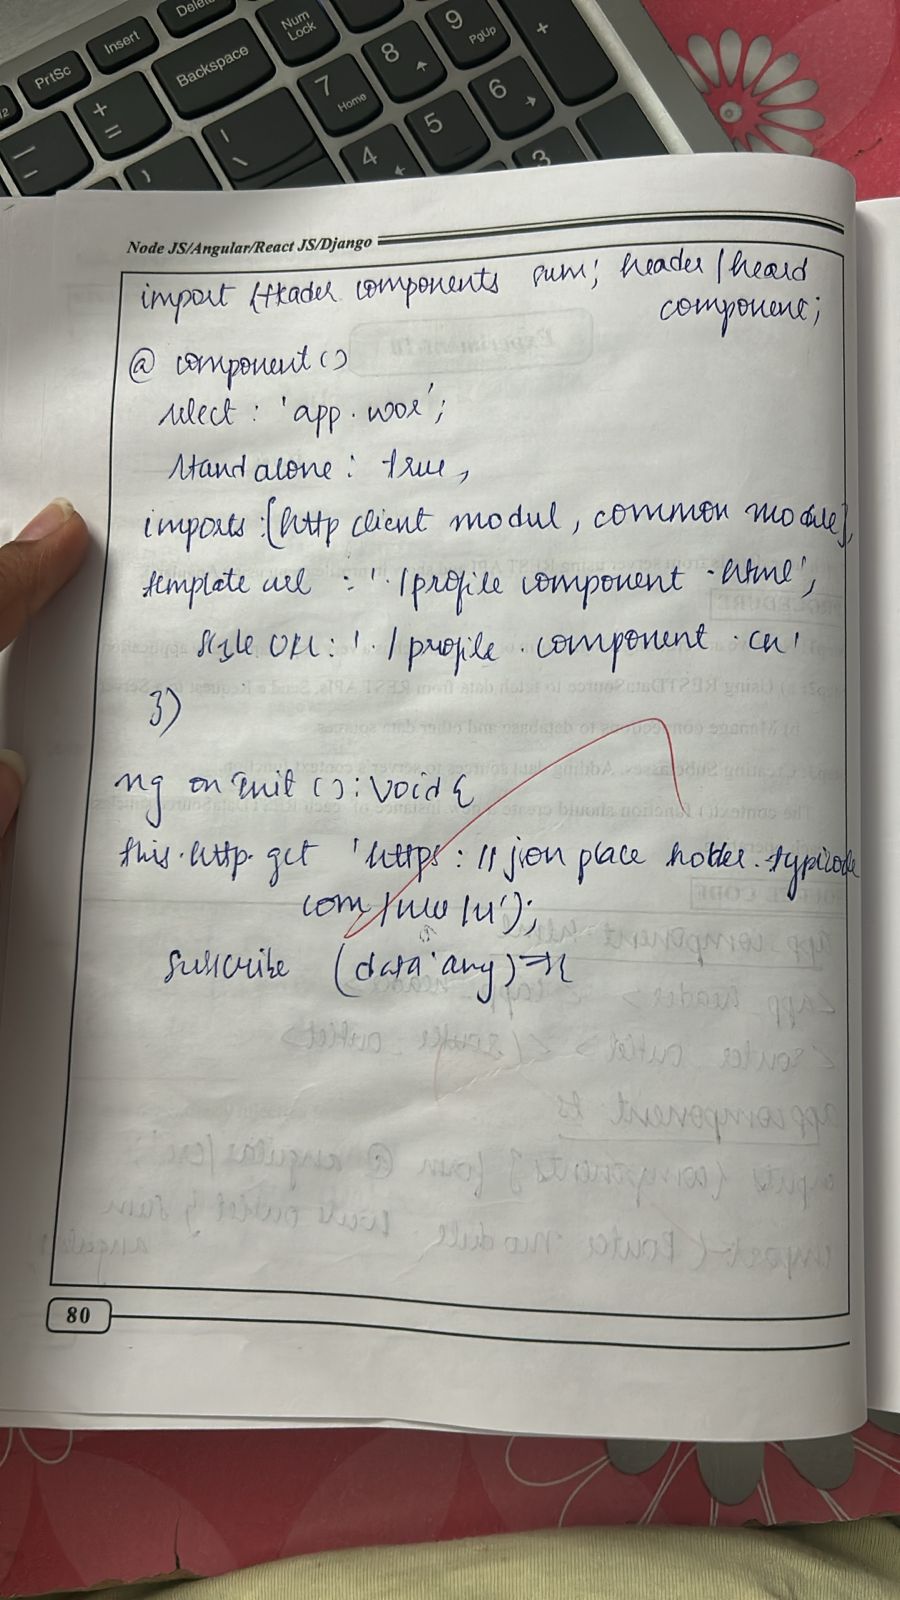 PrtSc
Insert
Delete
Backspace
Num Lock
7 Home
8
9 PgUp
+
4
5
6
3
Node JS/Angular/React JS/Django
import Header components sum; header/heard
component;
@ component()
select: 'app.
standalone: true,
imports:[http client modul, common module],
template url : './profile component.html',
style url: './profile.component.css'
3)
ng on init (): void {
this.http.get 'https://json place holder.typicode
com/
subscribe (data:any)=>{
80